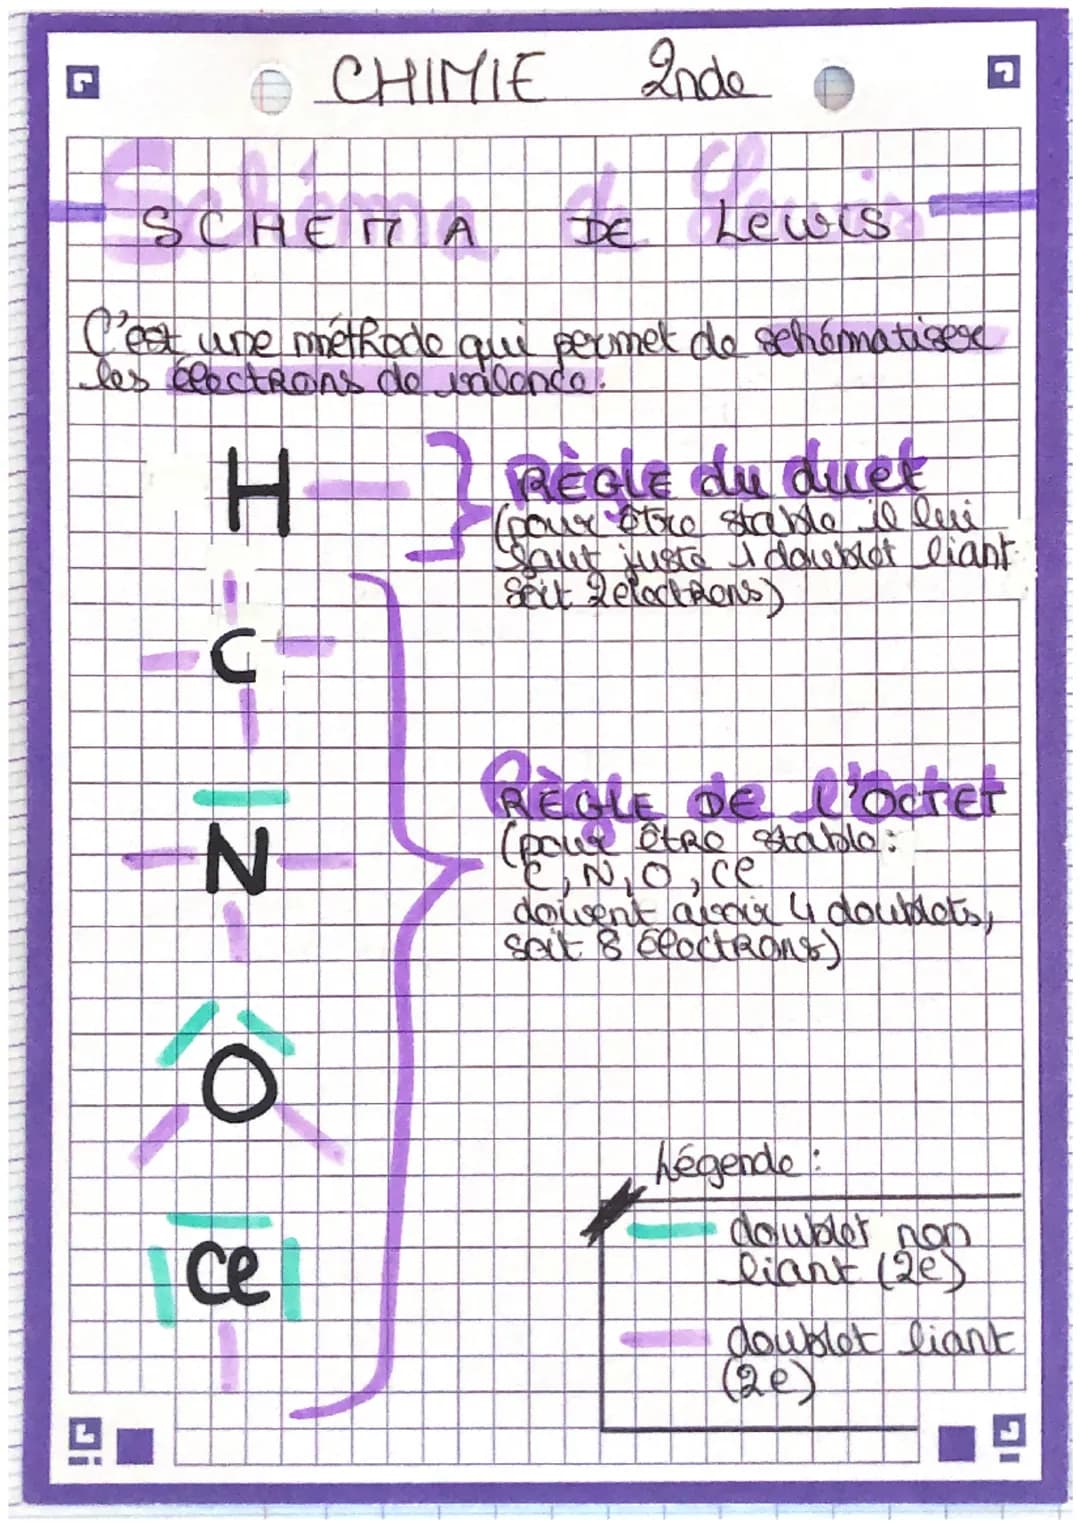 CHIMIE 2nde
Schéma de Lewis
SCHEMA DE Lewis
C'est une méthode qui permet de schématiser
les électrons de valence.
H
RÈGLE du duet
(pour être stable il lui
faut juste 1 doublet liant
soit 2 electrons)
C
N
RÈGLE DE l'OCTET
(pour être stable :
C, N, O, Cl
doivent avoir 4 doublets,
soit 8 électrons)
O
Cl
Légende :
doublet non
liant (2e)
doublet liant
(2e)